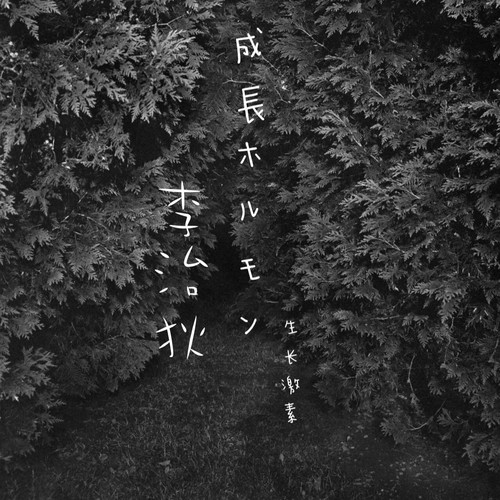 成長ホルモン
生长激素
李治狄